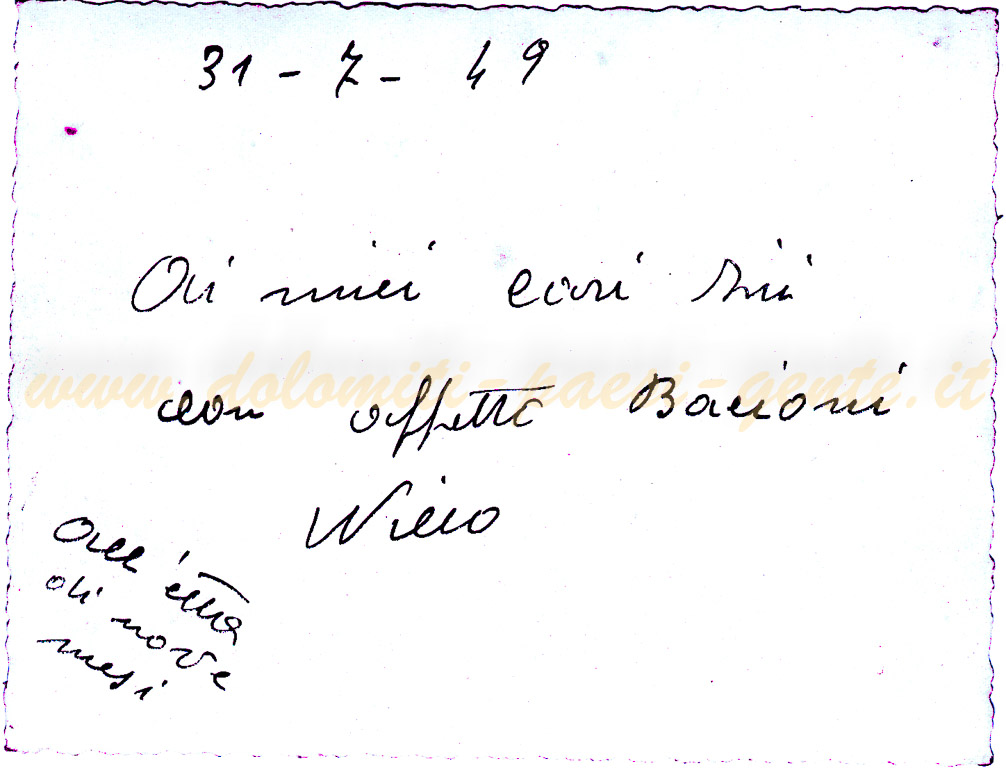 31 - 7 - 49
Ai miei cari zii
www.dolomiti-paesi-gente.it
con affetto Bacioni
all'età
di nove
mesi